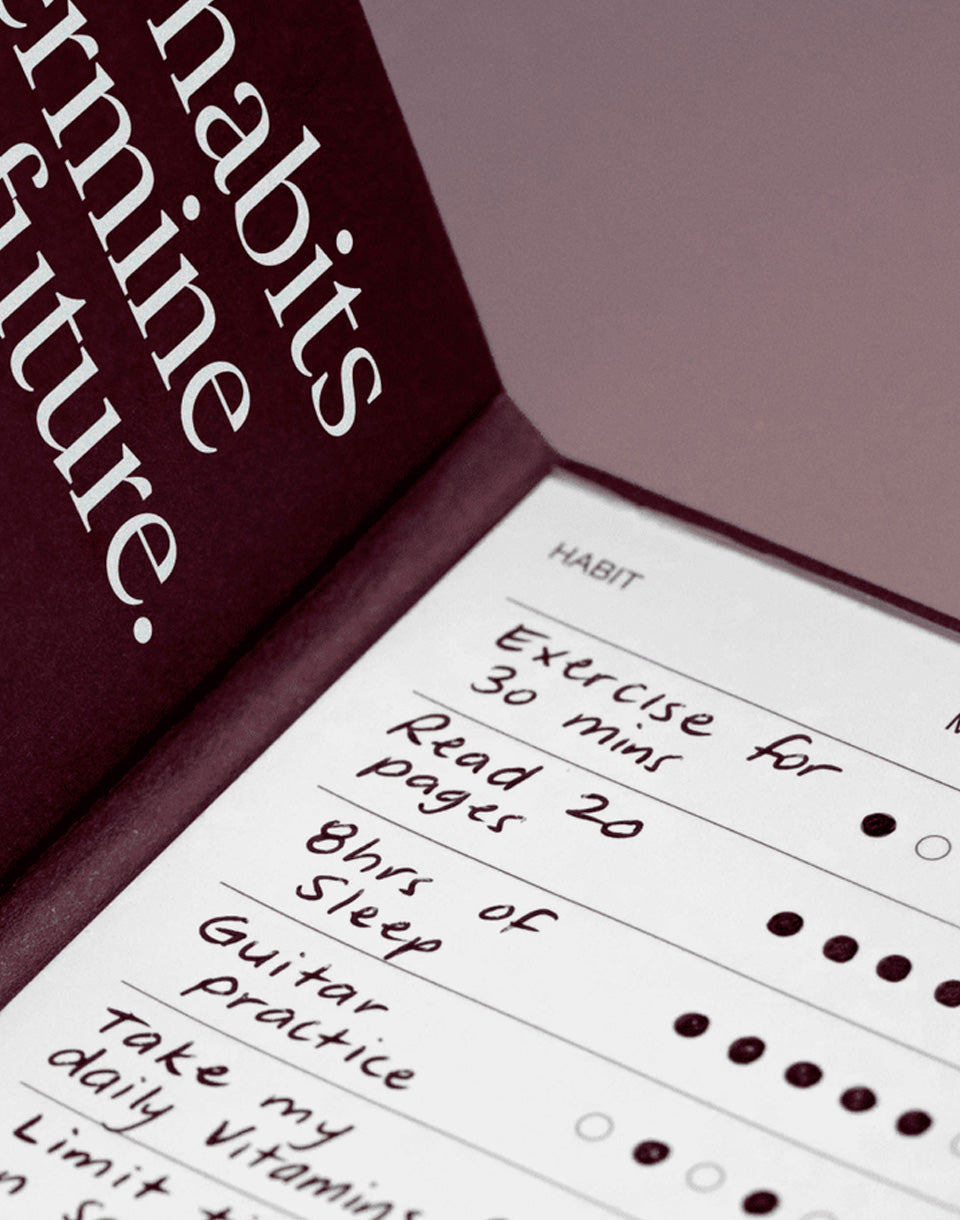 habits
ermine
future.
HABIT
M
Exercise for
30 mins
Read 20
pages
8hrs of
Sleep
Guitar
practice
Take my
daily Vitamins
Limit